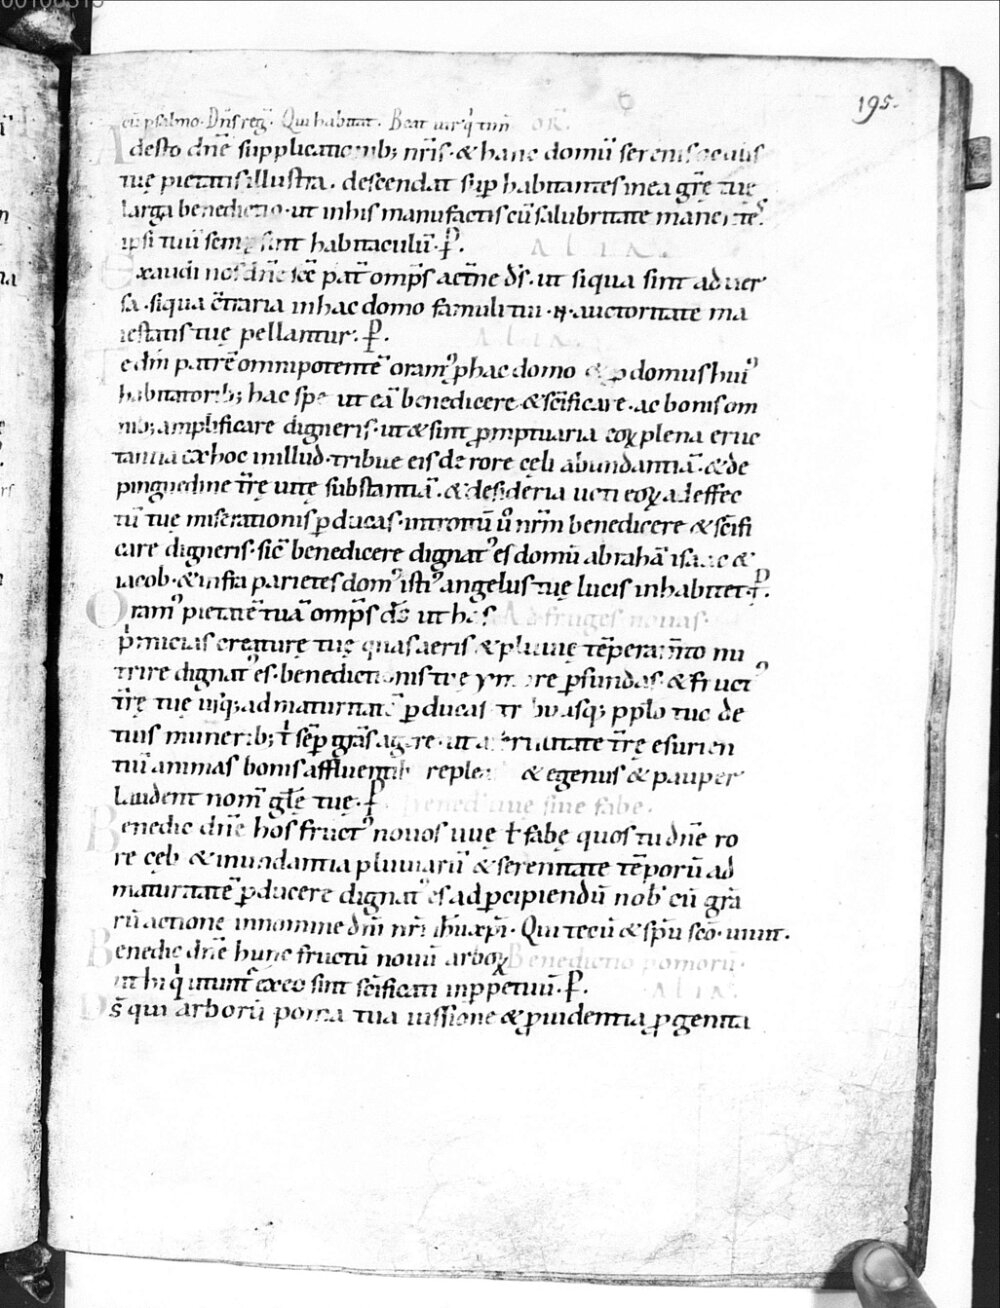 195.
cū psalmo. Dn̄s reg̅. Qui habitat. Beat uir q̇ tim̄ OR̄.
Adesto dn̄e supplicationib; nr̄is. & hanc domū serenis oculis
tuę pietatis illustra. descendat sup̱ habitantes in ea gr̄ę tuę
larga benedictio. ut in his manufactis cū salubritate manentes.
ipsi tuū semp̱ sint habitaculū. P̱. ALIA.
Exaudi nos dn̄e sc̄e pat̄ om̄ps aet̄ne ds̄. ut siqua sint aduer
sa. siqua c̄traria in hac domo famuli tui .N. auctoritate ma
iestatis tuę pellantur. P̱. ALIA.
Te dm̄ patrē omnipotentē oram᾽ p̱ hac domo & p̱ domus hui᾽
habitatorib; hac spe ut eā benedicere & sc̄ificare. ac bonis om
nib; amplificare digneris. ut & sint p̱mptuaria eoꝝ plena eruc
tantia ex hoc in illud. tribue eis de rore cęli abundantiā. & de
pinguedine tr̄ę uitę substantiā. & desideria uoti eoꝝ ad effec
tū tuę miserationis p̱ducas. introitū ū nr̄m benedicere & sc̄ifi
care digneris. sic̄ benedicere dignat᾽ es domū abrahā isaac &
iacob. & infra parietes dom᾽ isti᾽ angelus tuę lucis inhabitet. P̱.
Oram᾽ pietatē tuā om̄ps ds̄ ut has Ad fruges nouas.
p̍micias creaturę tuę quas aeris & pluuię tēperam̄to nu
trire dignat᾽ es. benedictionis tuę ymbre p̱fundas. & fruct᾽
tr̄ę tuę usq; ad maturitatē p̱ducas tribuasq; pplo tuo de
tuis munerib; t̍ sēp̱ grās agere. ut a fertilitate tr̄ę esurien
tiū animas bonis affluentib; repleas & egenus & pauper
laudent nom̄ gl̄ę tuę. P̱. Bened᾽ uuę siue fabe.
Benedic dn̄e hos fruct᾽ nouos uuę t̍ fabę quos tu dn̄e ro
re cęli & inundantia pluuiarū & serenitate tēporū ad
maturitatē p̱ducere dignat᾽ es ad p̱cipiendū nob᾽ cū grā
rū actione in nomine dn̄i nr̄i ih̄u xp̄i. Qui tecū & sp̄u sc̄o. uiuit.
Benedic dn̄e hunc fructū nouū arboꝝ Benedictio pomorū.
ut hi q̍ utunt᾽ ex eo sint sc̄ificati in p̱petuū. P̱. ALIA.
Ds̄ qui arborū poma tua iussione & p̱uidentia p̱genita